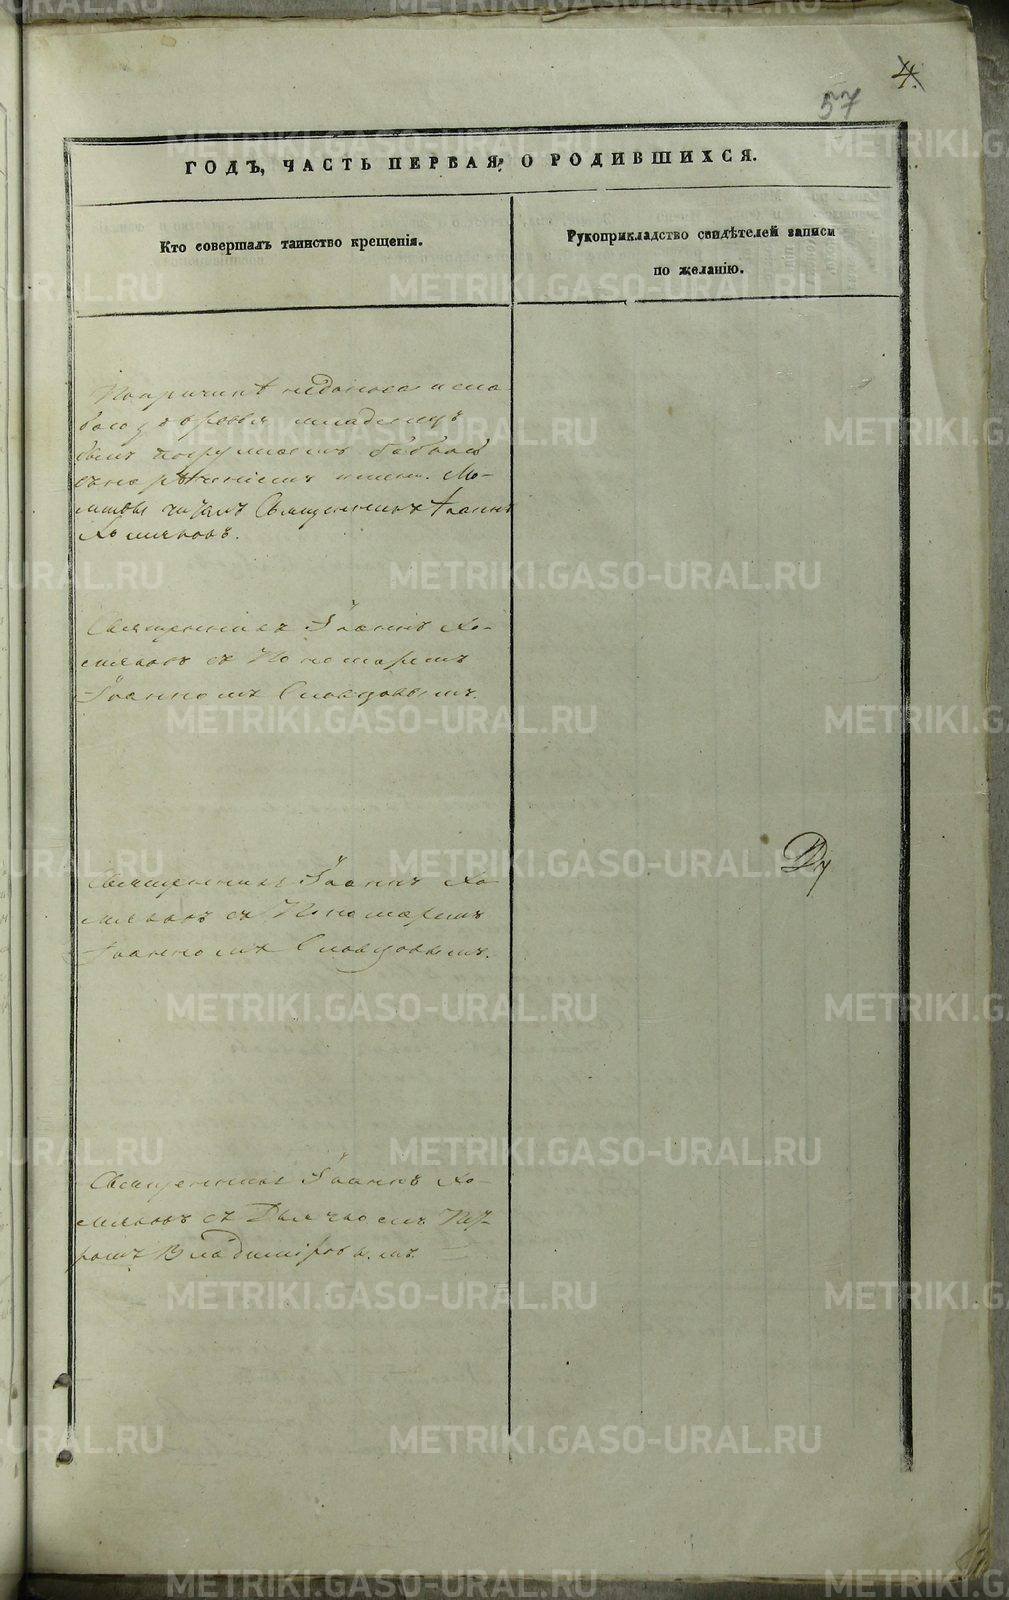 4.
57
ГОДЪ, ЧАСТЬ ПЕРВАЯ, О РОДИВШИХСЯ.
Кто совершалъ таинство крещенія.
Рукоприкладство свидѣтелей записи
по желанію.
По причинѣ недоноса и сла-
баго здоровья младенецъ
былъ погружаемъ бабкою
съ нареченіемъ имени. Мо-
литвы читалъ Священникъ Іоаннъ
Хомяковъ.
Священникъ Іоаннъ Хо-
мяковъ съ Пономаремъ
Іоанномъ Словцовымъ.
Священникъ Іоаннъ Хо-
мяковъ съ Пономаремъ
Іоанномъ Словцовымъ.
Ду
Священникъ Іоаннъ Хо-
мяковъ съ Дьячкомъ Пет-
ромъ Владиміровымъ.
METRIKI.GASO-URAL.RU